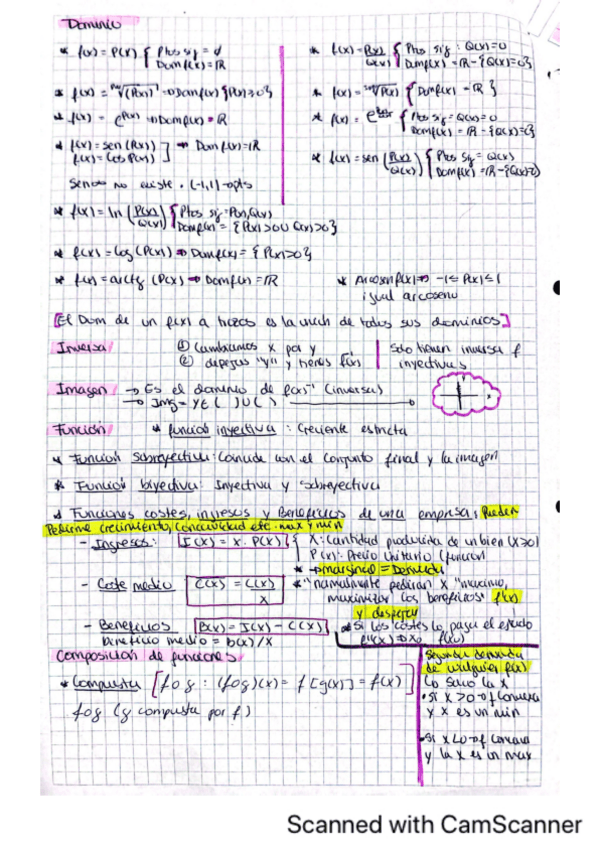 Dominio
* f(x) = P(x) { Ptos sig = ∅
Dom f(x) = IR
* f(x) = P(x)/Q(x) { Ptos sig : Q(x)=0
Domf(x) = IR - {Q(x)=0}
* f(x) = e^P(x) → Domf(x) = IR
* f(x) = sen (P(x))
f(x) = cos P(x) ] → Dom f(x)=IR
* f(x) = sen (P(x)/Q(x)) { Ptos sig = Q(x)
* f(x) = ln (P(x)/Q(x)) { Ptos sig = P(x), Q(x)
Domf(x) = { P(x)>0 U Q(x)>0 }
* f(x) = log (P(x)) → Domf(x) = { P(x)>0 }
* f(x) = arctg (P(x)) → Domf(x) = IR
* Arcosen f(x) → -1 ≤ P(x) ≤ 1
igual arcoseno
[El Dom de un f(x) a trozos es la unión de todos sus dominios]
Inversa
① Cambiamos x por y
② despejas "y" y tienes
Solo tienen inversa f
inyectivas
Imagen → Es el dominio de f(x)⁻¹ (inversa)
→ Img = y ∈ ( ) U ( )
Función
* función inyectiva : Creciente estricta
* Función sobreyectiva: Coincide con el conjunto final y la imagen
* Función biyectiva: Inyectiva y sobreyectiva
* Funciones costes, ingresos y Beneficios de una empresa: Pueden
Pedirme crecimiento, concavidad etc. max y min
- Ingresos: I(x) = x · P(x) { X: Cantidad producida de un bien (x>0)
P(x): Precio Unitario (función)
* → marginal = Derivada
- Coste medio C(x) = C(x)/x
* "normalmente pedirán x "máximo,
maximizar los beneficios" f'(x)
y despejar
- Beneficios B(x) = I(x) - C(x)
beneficio medio = b(x)/x
* si los costes lo pasas el
Composición de funciones
* Compuesta [ f o g : (f o g)(x) = f [g(x)] = f(x) ]
f o g (g compuesta por f)
Segunda derivada
de cualquier f(x)
• si x > 0 → f convexa
y x es un min
• si x < 0 → f concava
y la x es un max
Scanned with CamScanner